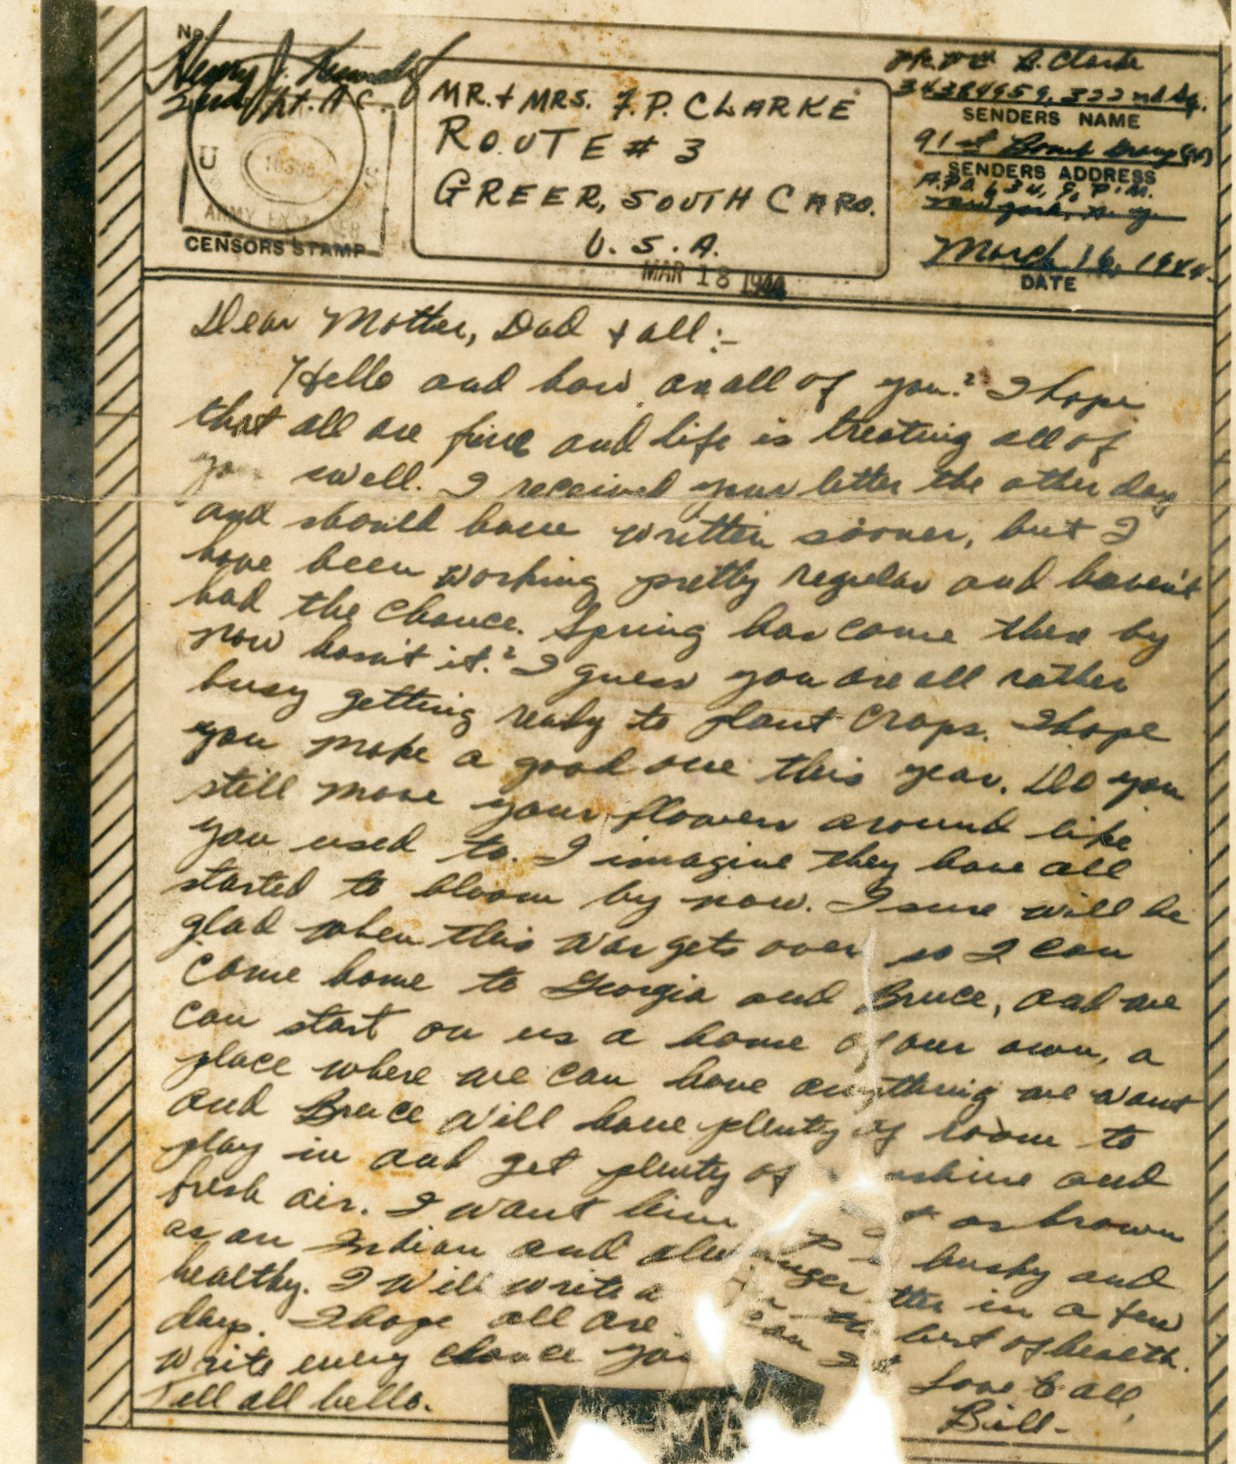 No.
Henry J.
2nd Lt. A.C.
U S
ARMY EXAMINER
CENSORS STAMP
MR. & MRS. F.P. CLARKE
ROUTE # 3
GREER, SOUTH CARO.
U.S.A.
MAR 18 1944
B. Clarke
34384959, 322nd Sq.
SENDERS NAME
91st Bomb Group (H)
SENDERS ADDRESS
A.P.O. 634, % P.M.
New York, N.Y.
March 16, 1944.
DATE
Dear Mother, Dad & all:-
Hello and how are all of you? I hope
that all are fine and life is treating all of
you swell. I received your letter the other day
and should have written sooner, but I
have been working pretty regular and haven't
had the chance. Spring has come there by
now hasn't it? I guess you are all rather
busy getting ready to plant crops. I hope
you make a good one this year. Do you
still move your flowers around like
you used to. I imagine they have all
started to bloom by now. I sure will be
glad when this war gets over so I can
come home to Georgia and Bruce, and we
can start on us a home of our own, a
place where we can have anything we want
and Bruce will have plenty of room to
play in and get plenty of sunshine and
fresh air. I want him as brown
as an Indian and husky and
healthy. I will write a in a few
days. I hope all are best of health.
Write every chance you
Tell all hello.
Love to all,
Bill-
V-MA